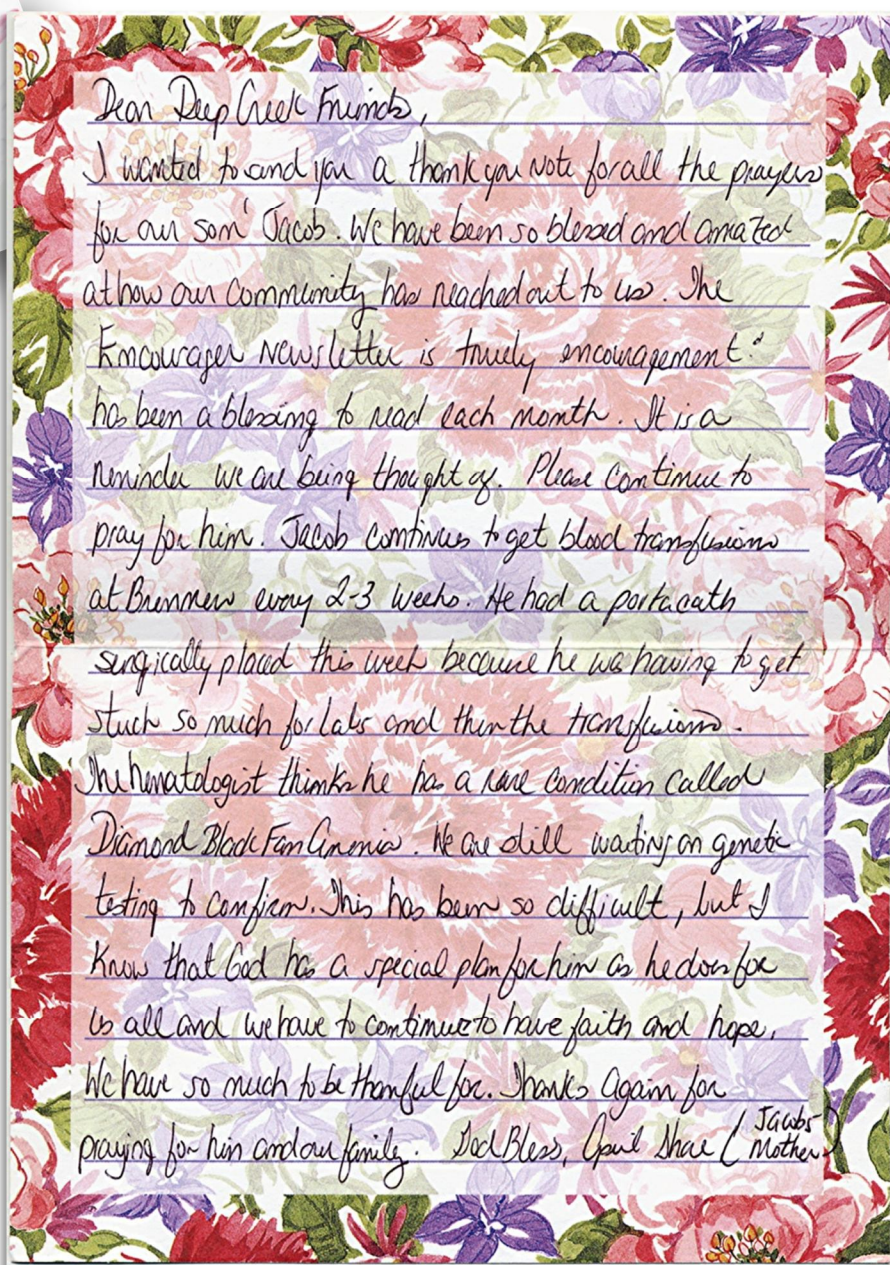 Dear Deep Creek Friends,
I wanted to send you a thank you note for all the prayers
for our son' Jacob. We have been so blessed and amazed
at how our community has reached out to us. The
Encourager Newsletter is truely encouragement. &
has been a blessing to read each month. It is a
reminder we are being thought of. Please continue to
pray for him. Jacob continues to get blood transfusions
at Brenners every 2-3 weeks. He had a portacath
surgically placed this week because he was having to get
stuck so much for labs and then the transfusions.
The hematologist thinks he has a rare condition called
Diamond Black Fan Anemia. We are still waiting on genetic
testing to confirm. This has been so difficult, but I
know that God has a special plan for him as he does for
us all and we have to continue to have faith and hope.
We have so much to be thankful for. Thanks again for
praying for him and our family. God Bless, April (Jacobs
Mother)